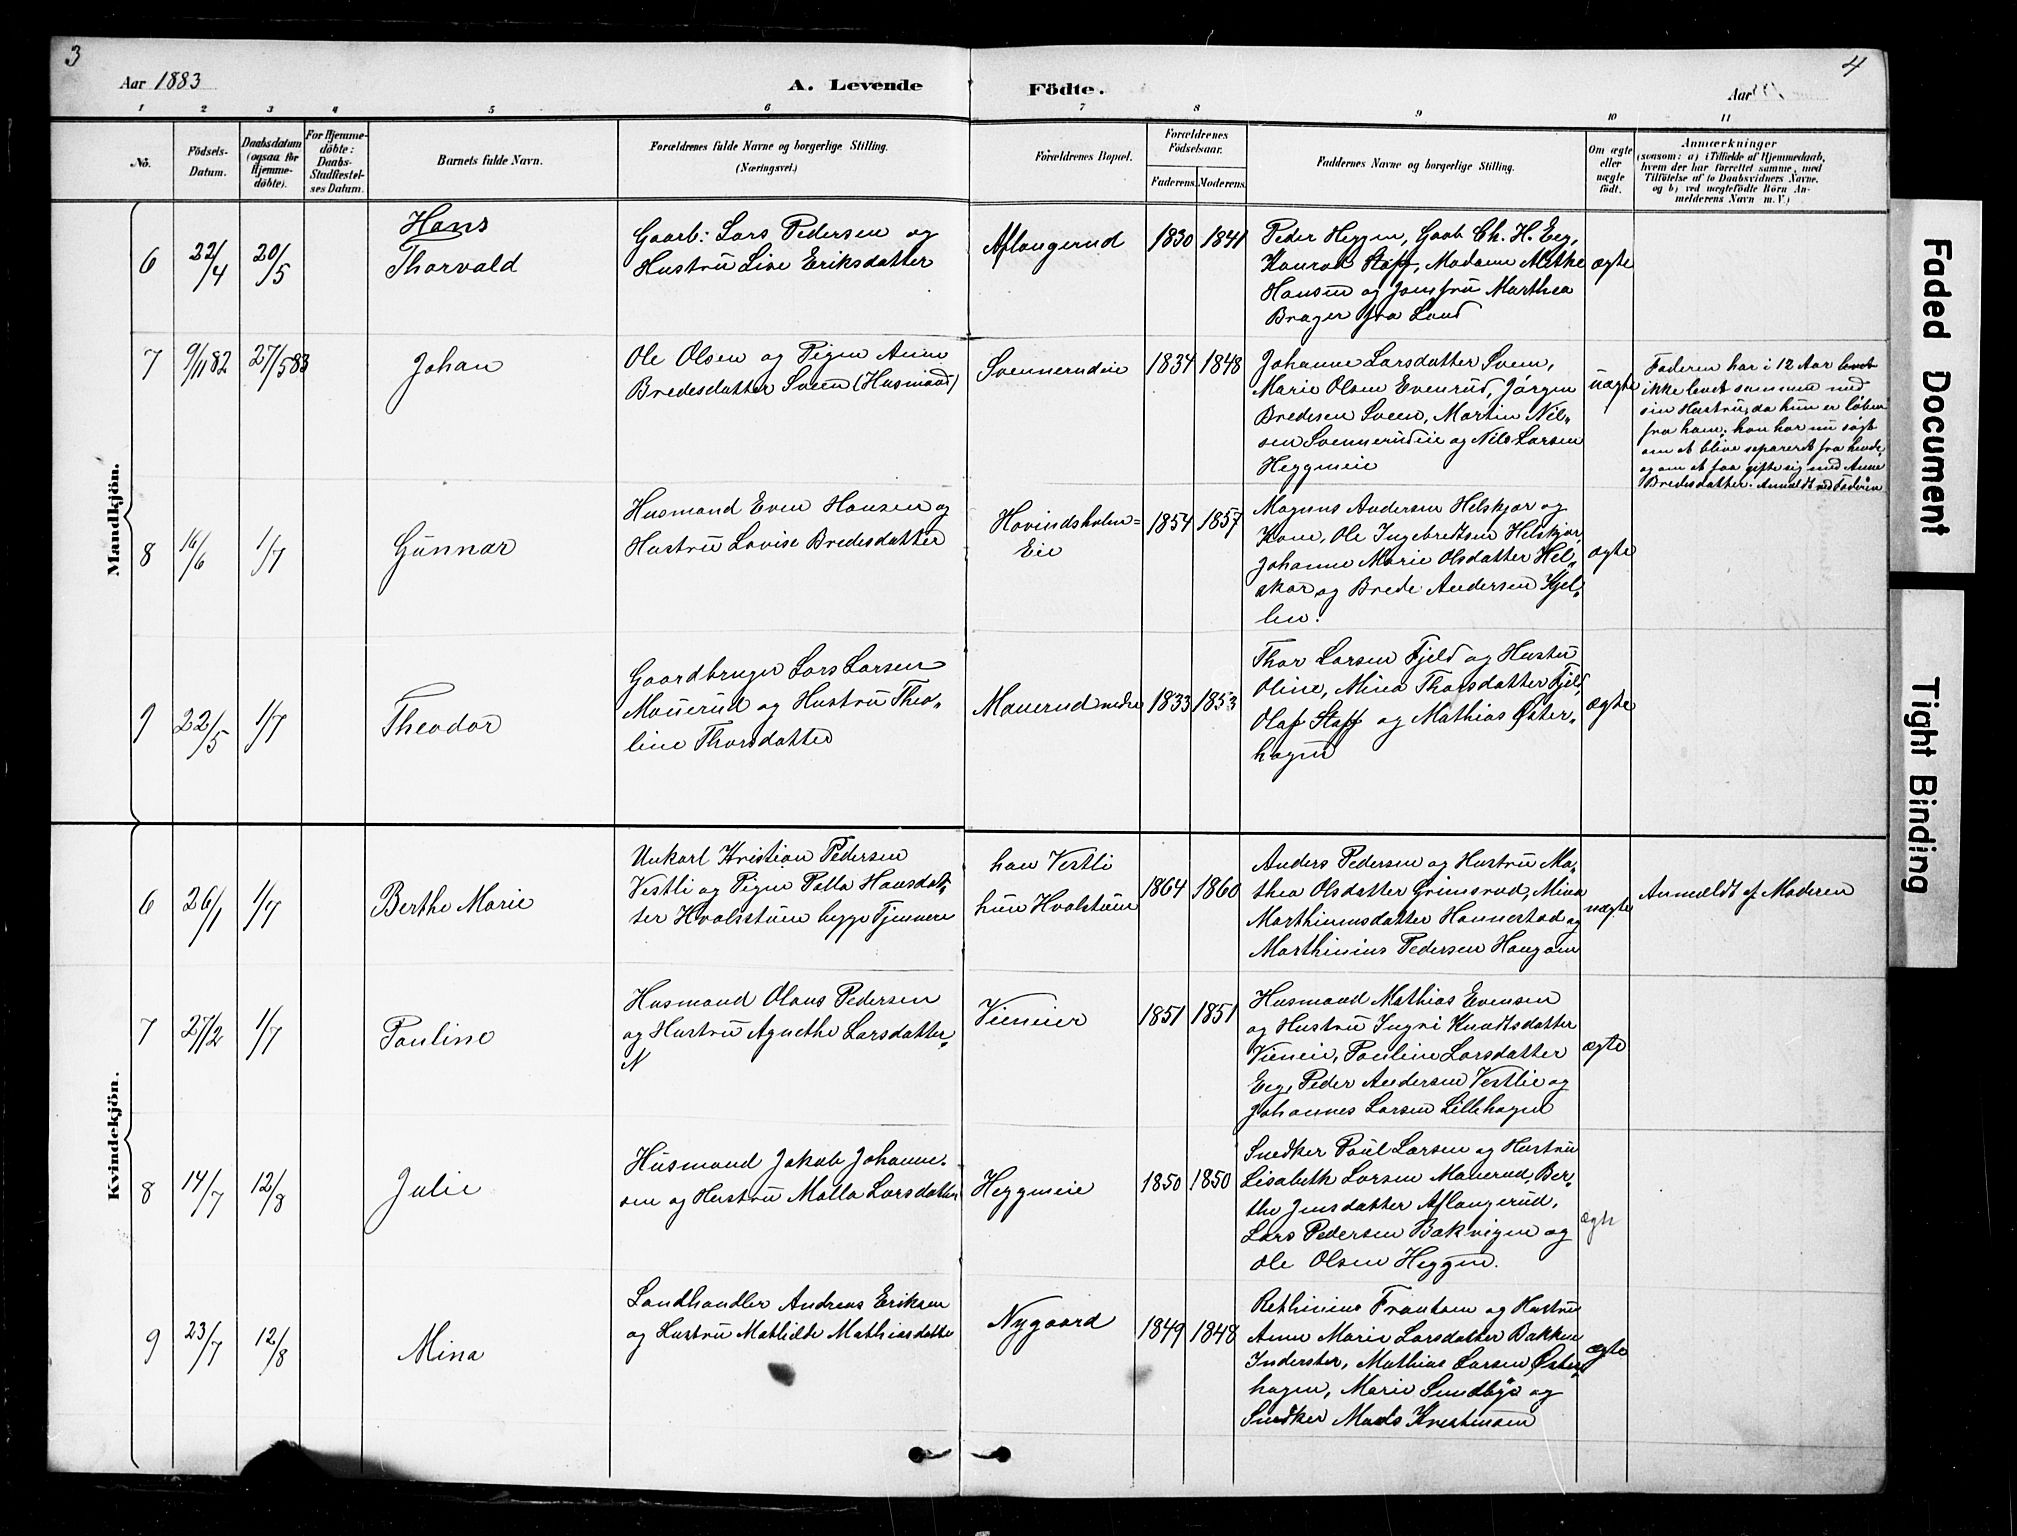 3
4
Aar 1883
A. Levende
Födte.
Aar
1 2 3 4 5 6 7 8 9 10 11
No.
Födsels-Datum.
Daabsdatum (ogsaa for Hjemme-döbte).
For Hjemme-döbte: Daabs-Stadfæstel-ses Datum.
Barnets fulde Navn.
Forældrenes fulde Navne og borgerlige Stilling.
(Næringsvei.)
Forældrenes Bopæl.
Forældrenes Födselsaar.
Faderens. Moderens.
Faddernes Navne og borgerlige Stilling.
Om ægte eller uægte födt.
Anmærkninger
(saasom: a) i Tilfælde af Hjemmedaab,
hvem der har forrettet samme, med
Tilföielse af to Daabsvidners Navne,
og b) ved uægtefödte Börn An-
melderens Navn m. V.)
Mandkjön.
6
22/4
20/5
Hans
Thorvald
Gaarb: Lars Pedersen og
Hustru Lise Eriksdatter
Aflangerud
1830
1841
Peder Heggen, Gaab Ch. H. Eeg,
Konrad Staff, Madame Mathe
Hansen og Jomfru Marthea
Brager fra Land
ægte
7
9/11 82
27/5 83
Johan
Ole Olsen og Pigen Anne
Bredesdatter Sveen (Husmand)
Svennerudeie
1834
1848
Johanne Larsdatter Sveen,
Marie Olsen Evenrud, Jörgen
Bredesen Sveen, Martin Niel-
sen Svennerudeie og Nils Larsen
Heggeneie
uægte
Faderen har i 12 Aar levet
ikke levet sammen med
sin Hustru, da hun er löben
fra ham; han har nu sögt
om at blive separeret fra hende,
og om at faa gifte sig med Anne
Bredesdatter. Anmeldt ved Faderen
8
16/6
1/7
Gunnar
Husmand Even Hansen og
Hustru Lovise Bredesdatter
Hovindsholm=
Eie
1854
1857
Magnus Andersen Helskjar og
Kone, Ole Ingebredtsen Helskjar,
Johanne Marie Olsdatter Hel-
skar og Brede Andersen Kjel-
len.
ægte
9
22/5
1/7
Theodor
Gaardbruger Lars Larsen
Mauerud og Hustru Theo-
line Thorsdatter
Mauerud nedre
1833
1853
Thor Larsen Fjeld og Hustru
Oline, Mina Thorsdatter Fjeld,
Olaf Staff og Mathias Öster-
hagen
ægte
Kvindekjön.
6
26/1
1/4
Berthe Marie
Unkarl Kristian Pedersen
Vestli og Pigen Palla Hansdat-
ter Hvalstuen begge Tjenere
han Vestli
hun Hvalstuen
1864
1860
Anders Pedersen og Hustru Ma-
thea Olsdatter Grimsrud, Mina
Marthinusdatter Hannestad og
Marthinius Pedersen Haugom
uægte
Anmeldt af Moderen
7
27/2
1/7
Pauline
Husmand Olaus Pedersen
og Hustru Agnethe Larsdatter.
N
Vieneier
1851
1851
Husmand Mathias Evensen
og Hustru Ingri Knudtsdatter
Vieneie, Pauline Larsdatter
Eeg, Peder Andersen Vestlie og
Johannes Larsen Lillehagen
ægte
8
14/7
12/8
Julie
Husmand Jakob Johanne-
sen og Hustru Malla Larsdatter
Heggeneie
1850
1850
Snedker Paul Larsen og Hustru
Lisabeth Larsen Mauerud, Ber-
the Jensdatter Aflangerud,
Lars Pedersen Bakvigen og
Ole Olsen Heggen.
ægte
9
23/7
12/8
Mina
Landhandler Andreas Eriksen
og Hustru Mathilde Mathiasdatter
Nygaard
1849
1848
Rethinius Frantsen og Hustru
Anne Marie Larsdatter Bakken
Inderster, Mathias Larsen Öster-
hagen, Marie Sundbye og
Snedker Mads Kristensen
ægte
Faded Document
Tight Binding